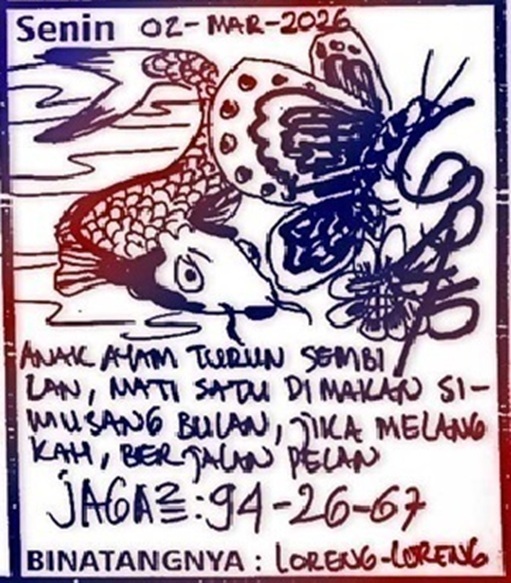 Senin 02-MAR-2026
ANAK AYAM TURUN SEMBI
LAN, MATI SATU DIMAKAN SI-
MUSANG BULAN, JIKA MELANG
KAH, BERJALAN PELAN
JAGA2=:94-26-67
BINATANGNYA : LORENG-LORENG